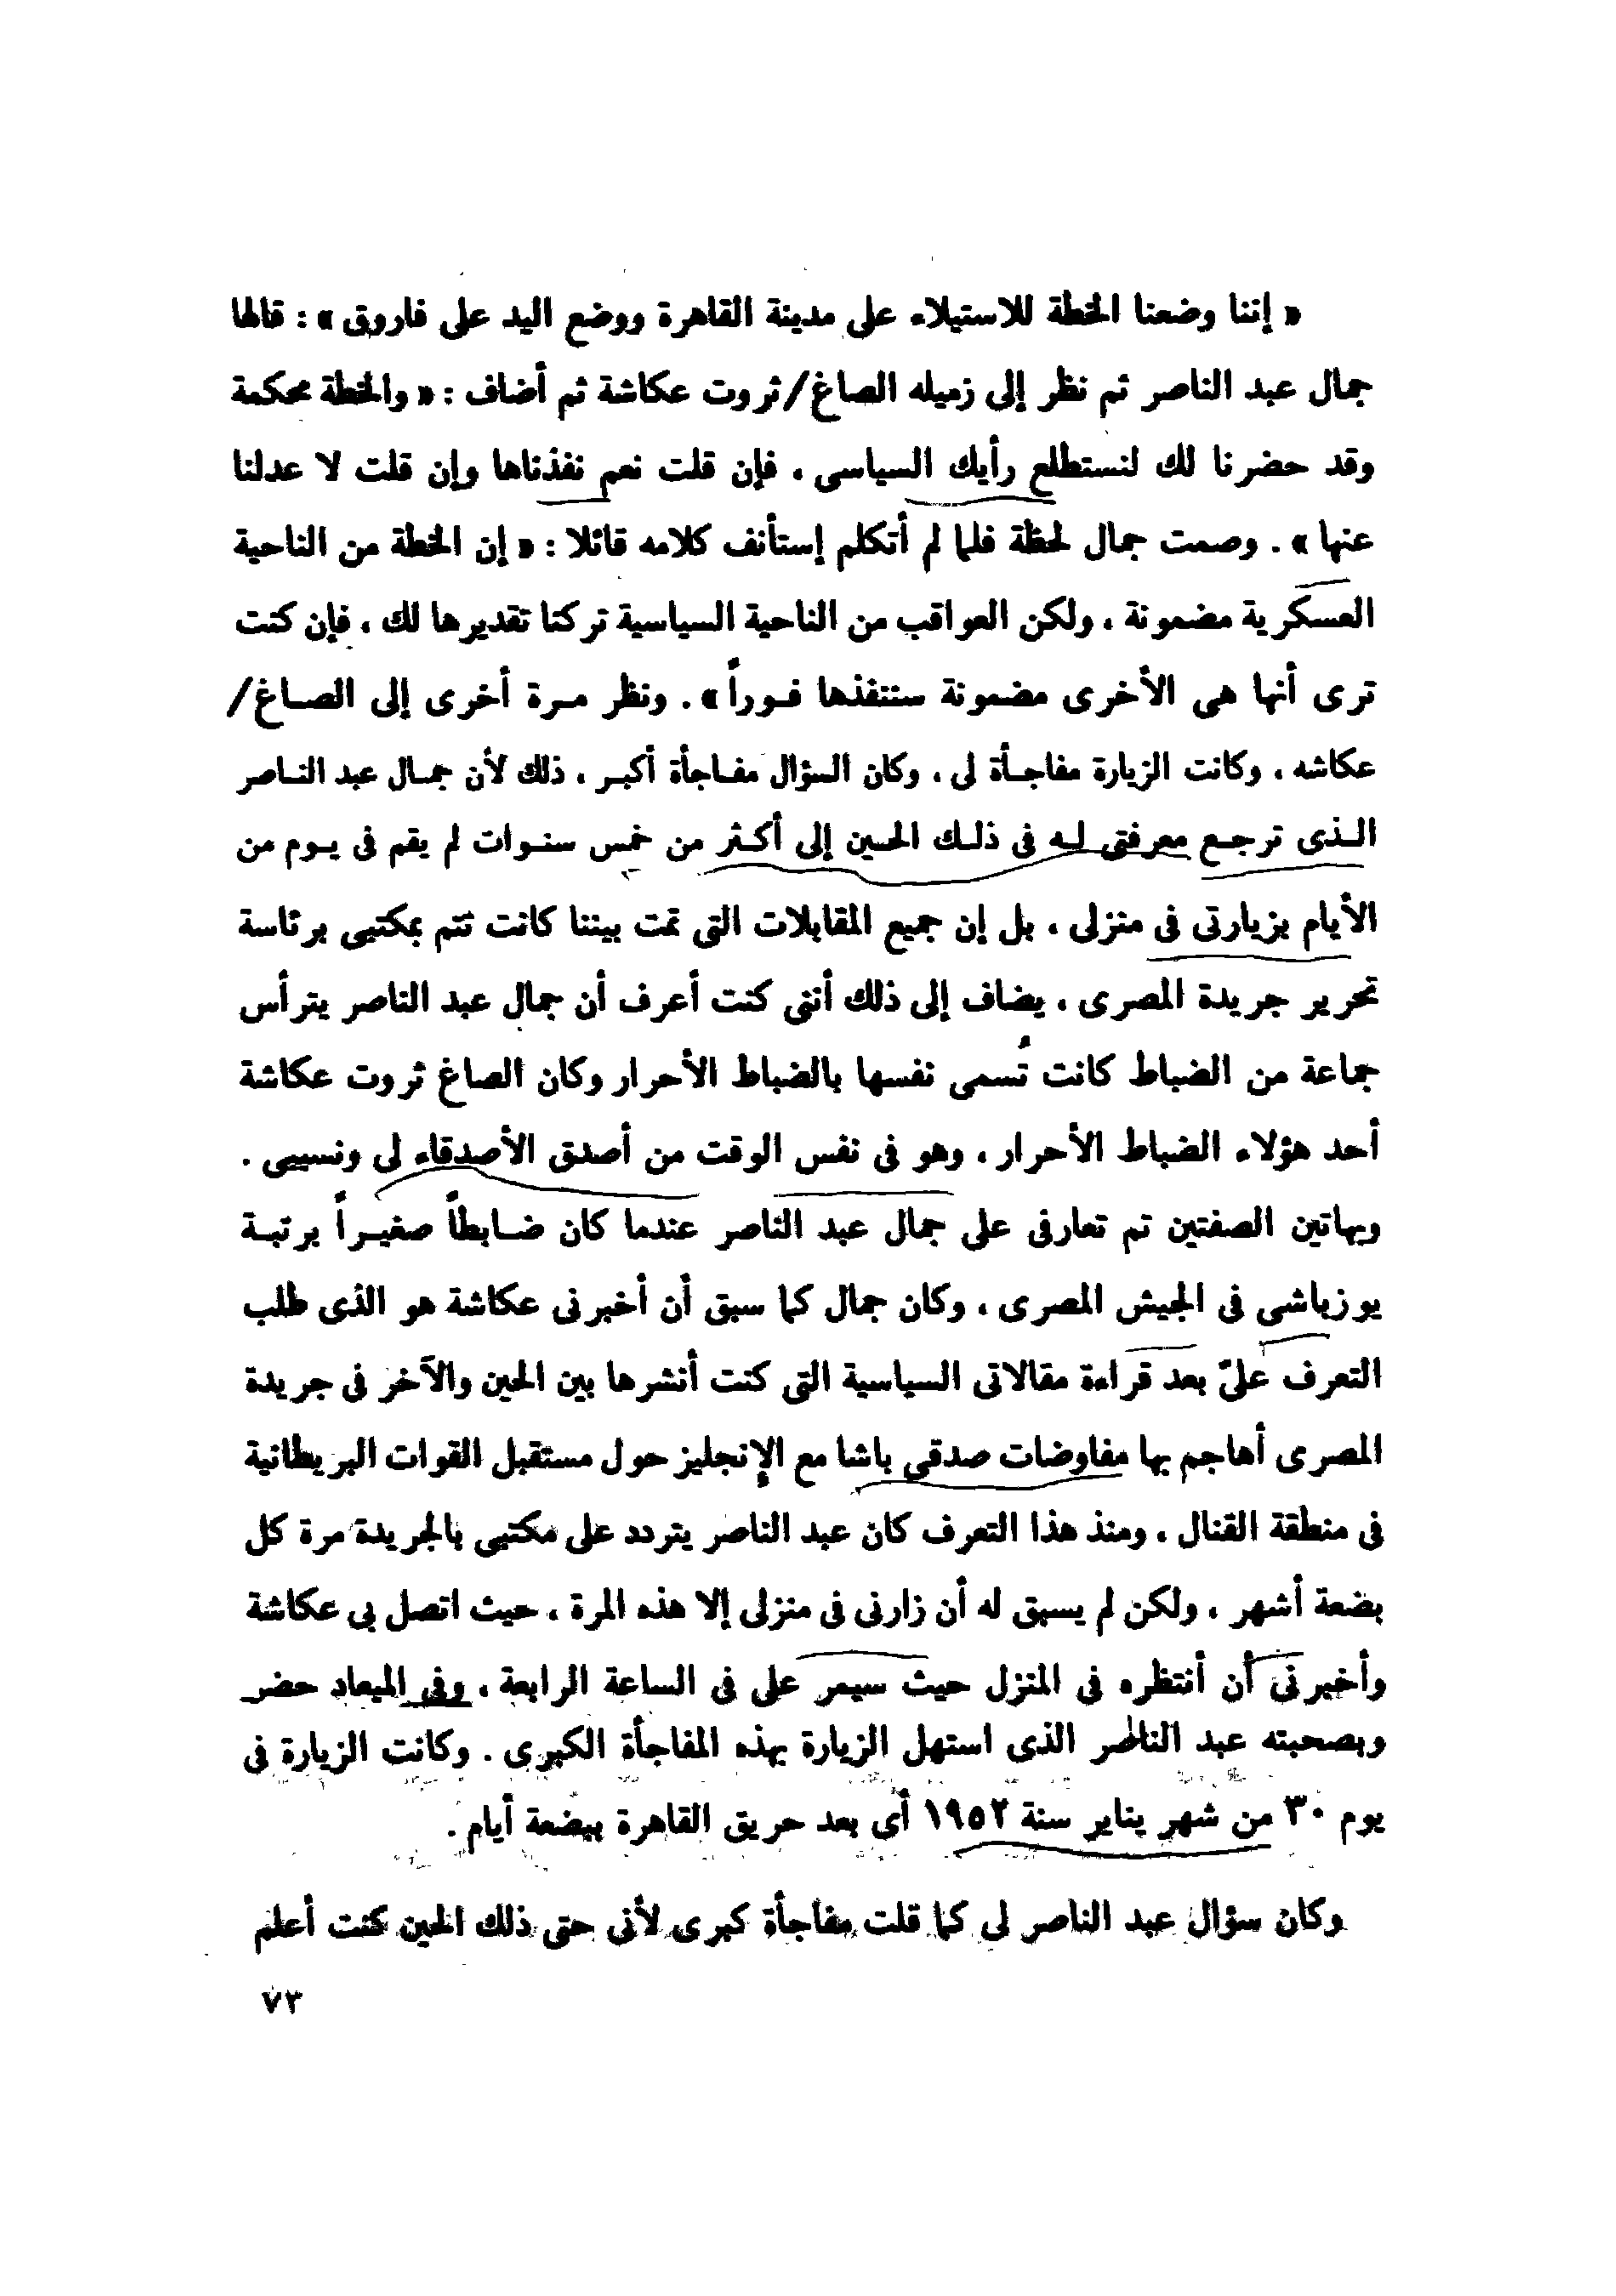 « إننا وضعنا الخطة للاستيلاء على مدينة القاهرة ووضع اليد على فاروق » : قالها
جمال عبد الناصر ثم نظر إلى زميله الصاغ/ثروت عكاشة ثم أضاف : « والخطة محكمة
وقد حضرنا لك لنستطلع رأيك السياسى ، فإن قلت نعم نفذناها وإن قلت لا عدلنا
عنها » . وصمت جمال لحظة فلما لم أتكلم إستأنف كلامه قائلا : « إن الخطة من الناحية
العسكرية مضمونة ، ولكن العواقب من الناحية السياسية تركنا تقديرها لك ، فإن كنت
ترى أنها هى الأخرى مضمونة سننفذها فوراً » . ونظر مرة أخرى إلى الصاغ/
عكاشه ، وكانت الزيارة مفاجأة لى ، وكان السؤال مفاجأة أكبر ، ذلك لأن جمال عبد الناصر
الذى ترجع معرفتى له فى ذلك الحين إلى أكثر من خمس سنوات لم يقم فى يوم من
الأيام بزيارتى فى منزلى ، بل إن جميع المقابلات التى تمت بيننا كانت تتم بمكتبى برئاسة
تحرير جريدة المصرى ، يضاف إلى ذلك أننى كنت أعرف أن جمال عبد الناصر يترأس
جماعة من الضباط كانت تُسمى نفسها بالضباط الأحرار وكان الصاغ ثروت عكاشة
أحد هؤلاء الضباط الأحرار ، وهو فى نفس الوقت من أصدق الأصدقاء لى ونسيبى .
وبهاتين الصفتين تم تعارفى على جمال عبد الناصر عندما كان ضابطاً صغيراً برتبة
يوزباشى فى الجيش المصرى ، وكان جمال كما سبق أن أخبرنى عكاشة هو الذى طلب
التعرف علىّ بعد قراءة مقالاتى السياسية التى كنت أنشرها بين الحين والآخر فى جريدة
المصرى أهاجم بها مفاوضات صدقى باشا مع الإنجليز حول مستقبل القوات البريطانية
فى منطقة القنال ، ومنذ هذا التعرف كان عبد الناصر يتردد على مكتبى بالجريدة مرة كل
بضعة أشهر ، ولكن لم يسبق له أن زارنى فى منزلى إلا هذه المرة ، حيث اتصل بى عكاشة
وأخبرنى أن أنتظره فى المنزل حيث سيمر على فى الساعة الرابعة ، وفى الميعاد حضر
وبصحبته عبد الناصر الذى استهل الزيارة بهذه المفاجأة الكبرى . وكانت الزيارة فى
يوم ٣٠ من شهر يناير سنة ١٩٥٢ أى بعد حريق القاهرة ببضعة أيام .
وكان سؤال عبد الناصر لى كما قلت مفاجأة كبرى لأنى حتى ذلك الحين كنت أعلم
٧٣